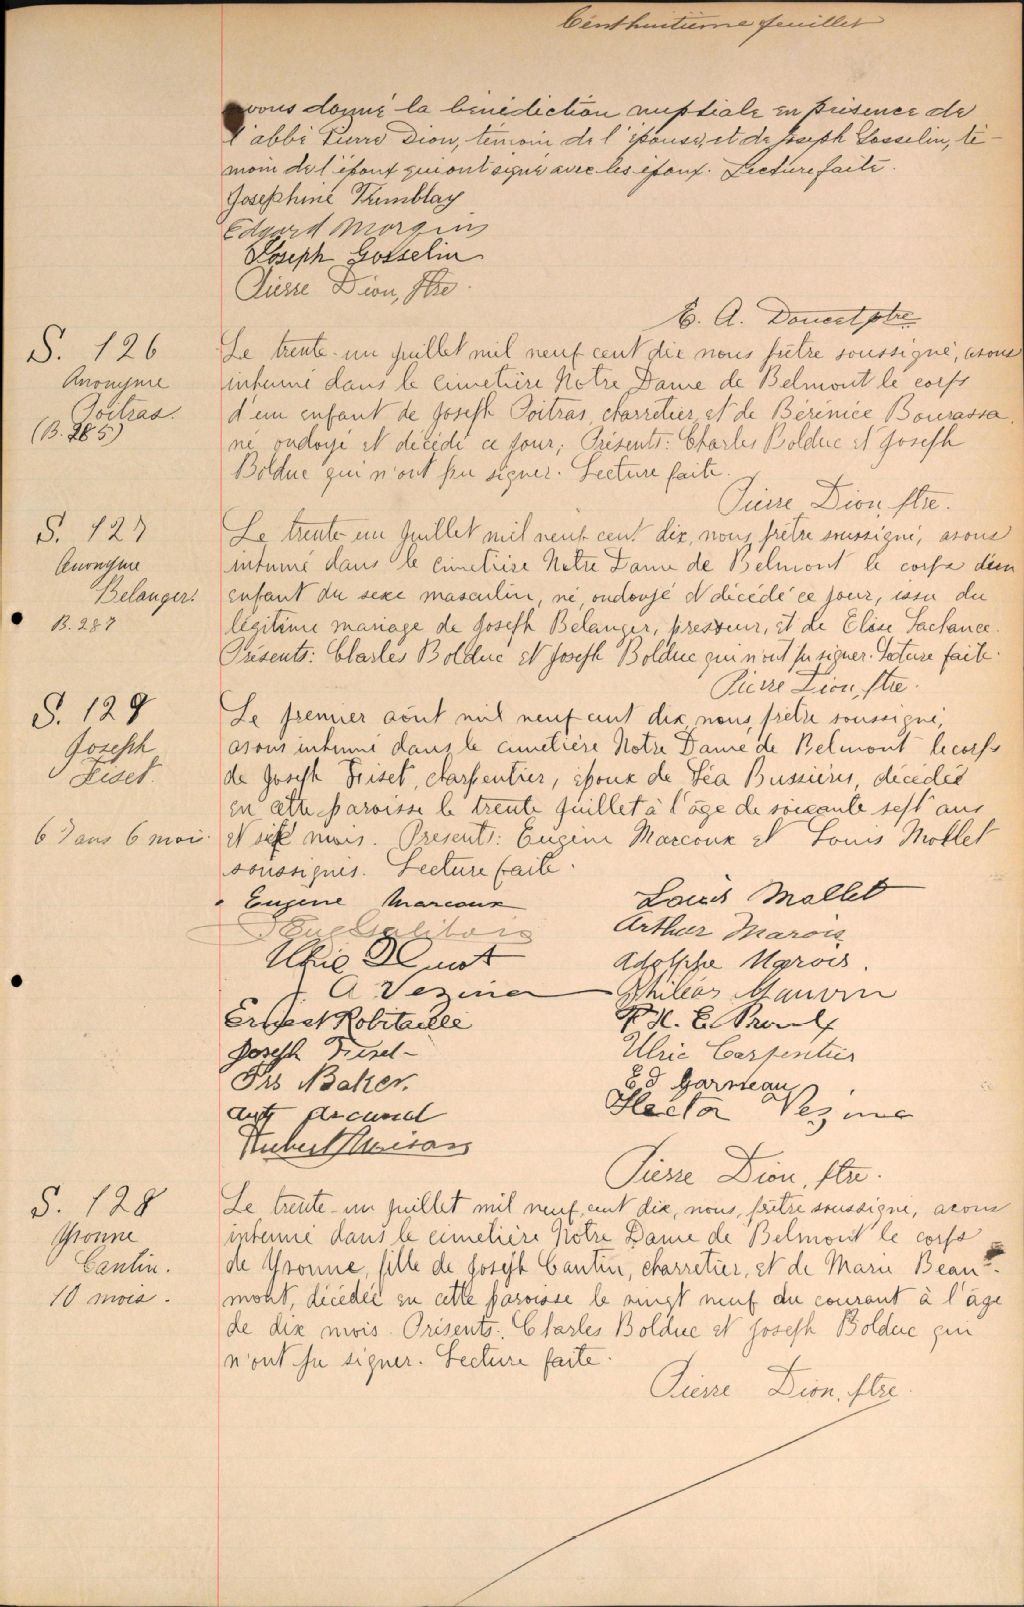 Cent huitième feuillet
avons donné la bénédiction nuptiale en présence de
l'abbé Pierre Dion, témoin de l'épouse, et de Joseph Gosselin, té-
moin de l'époux qui ont signé avec les époux. Lecture faite.
Josephine Tremblay
Edgard Morgins
Joseph Gosselin
Pierre Dion, ptre.
E. A. Doucet ptre
S. 126
Anonyme
Poitras.
(B. 285)
Le trente-un juillet mil neuf cent dix nous prêtre soussigné, avons
inhumé dans le cimetière Notre Dame de Belmont le corps
d'un enfant de Joseph Poitras, charretier, et de Bérénice Bourassa,
né, ondoyé et décédé ce jour; Présents: Charles Bolduc et Joseph
Bolduc qui n'ont pu signer. Lecture faite.
Pierre Dion, ptre.
S. 127
Anonyme
Belanger.
B. 287
Le trente-un juillet mil neuf cent dix, nous, prêtre soussigné, avons
inhumé dans le cimetière Notre Dame de Belmont le corps d'un
enfant du sexe masculin, né, ondoyé et décédé ce jour, issu du
légitime mariage de Joseph Belanger, presseur, et de Elise Lachance.
Présents: Charles Bolduc et Joseph Bolduc qui n'ont pu signer. Lecture faite.
Pierre Dion, ptre.
S. 129
Joseph
Fiset.
67 ans 6 mois.
Le premier août mil neuf cent dix, nous, prêtre soussigné,
avons inhumé dans le cimetière Notre Dame de Belmont le corps
de Joseph Fiset, charpentier, époux de Léa Bussières, décédé
en cette paroisse le trente juillet à l'âge de soixante sept ans
et six mois. Présents: Eugène Marcoux et Louis Mollet
soussignés. Lecture faite.
Eugène Marcoux
Louis Mallet
Eug Galibois
Arthur Marois
Ulric Huot
Adolphe Marois.
A Vezina
Philéas Gauvin
Ernest Robitaille
P. H. E. Proulx
Joseph Fiset
Ulric Carpentier
Frs Baker.
Ed Garneau
Hector Vezina
Hubert Moisan
Pierre Dion, ptre.
S. 128
Yvonne
Cantin.
10 mois.
Le trente-un juillet mil neuf cent dix, nous, prêtre soussigné, avons
inhumé dans le cimetière Notre Dame de Belmont le corps
de Yvonne, fille de Joseph Cantin, charretier, et de Marie Beau-
mont, décédée en cette paroisse le vingt neuf du courant à l'âge
de dix mois. Présents: Charles Bolduc et Joseph Bolduc qui
n'ont pu signer. Lecture faite.
Pierre Dion, ptre.